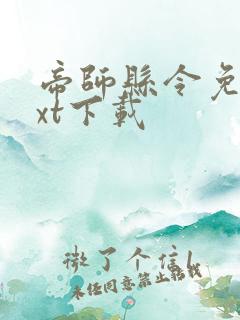 帝師縣令免
xt下載
微了个信l
未经同意禁止转载